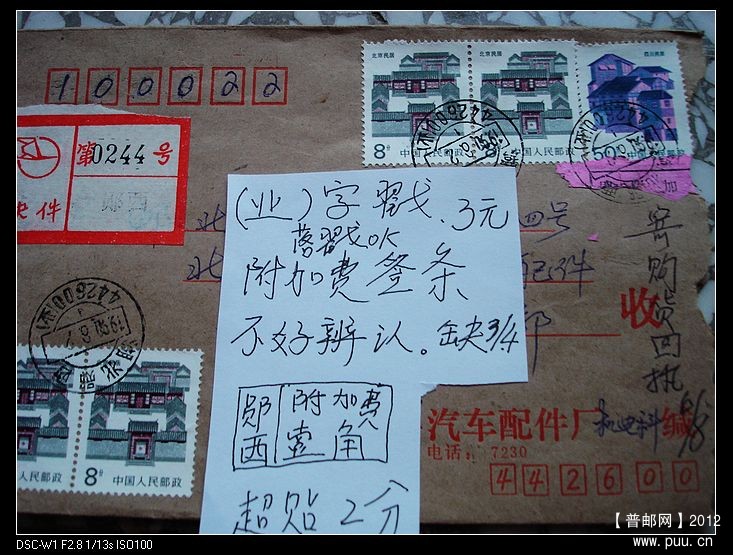 100022
第0244号
快件
北京民居
北京民居
四川民居
8分 中国人民邮政
中国人民邮政
50分 中国人民邮政
加
(业)字戳.3元
落戳OK
附加费签条
不好辨认。缺3/4
郧西
附加费
壹角
超贴2分
北
四号
北
配件
收
部
寄购货回执
442600
1992.6.1
郧西
8分 中国人民邮政
汽车配件厂 机电科 缄
电话: 7230
442600
DSC-W1 F2.8 1/13s ISO100
【普邮网】2012
www.puu.cn